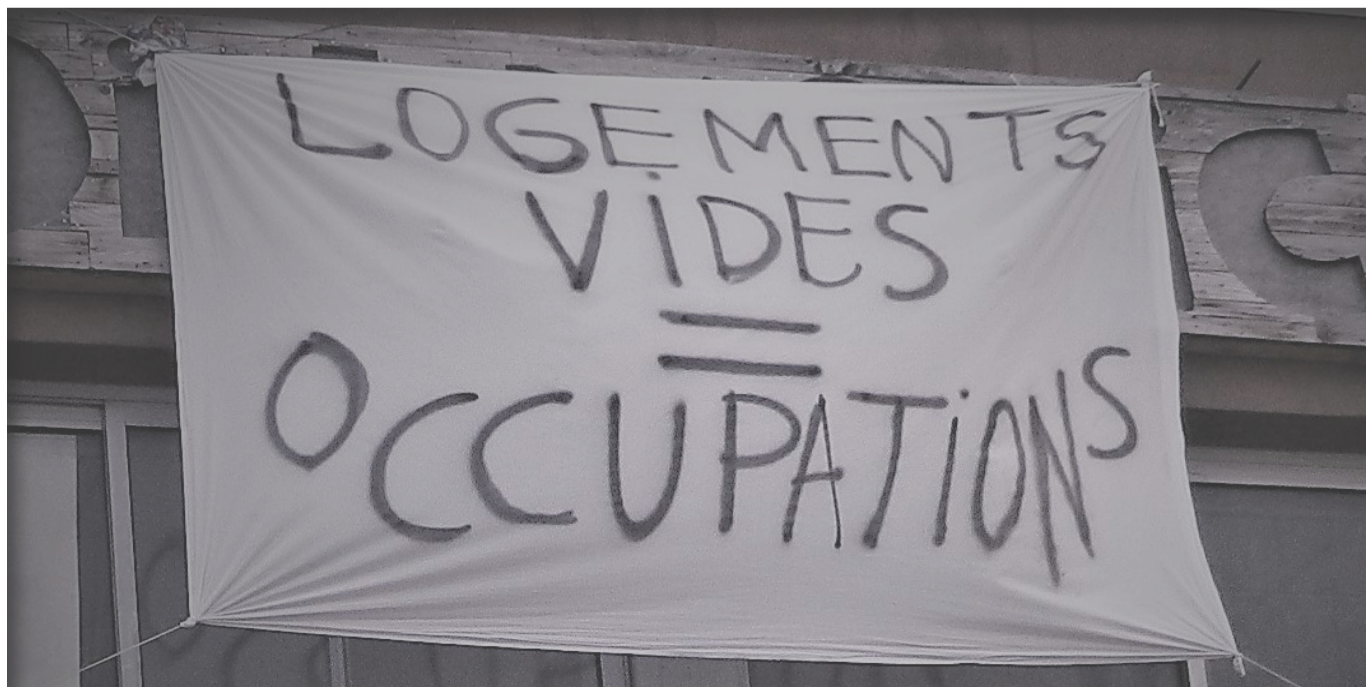 LOGEMENTS
ViDES
=
OCCUPATiONS